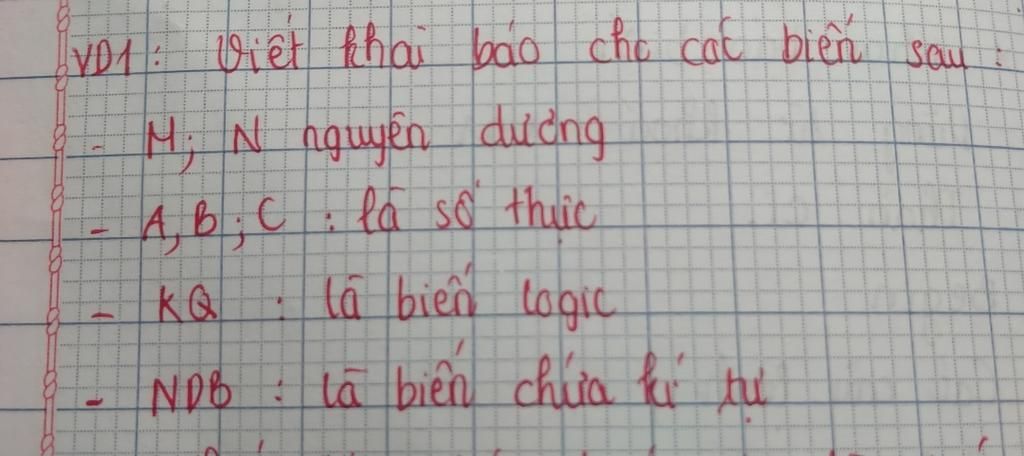 VD1: Viết khai báo cho các biến sau:
- M; N nguyên dương
- A, B; C : là số thực
- KQ : là biến logic
- NDB : là biến chứa kí tự